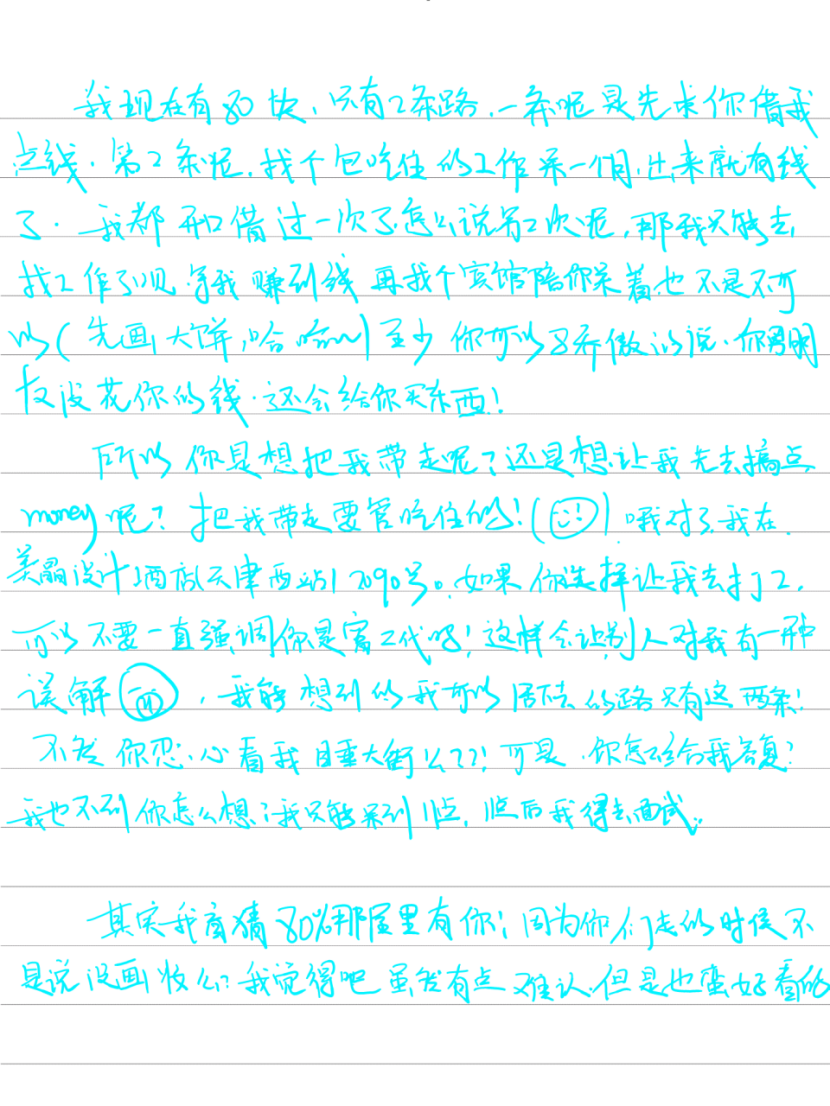 我现在有80块，只有2条路，一条呢是先求你借我
点钱，第2条呢，找个包吃住的工作呆一个月，出来就有钱
了。我都开口借过一次了怎么说第2次呢，那我只能去
找工作了呗，等我赚到钱再找个宾馆陪你呆着也不是不可
以（先画大饼，哈哈~）至少你可以骄傲的说，你男朋
友没花你的钱，还会给你买东西！
所以你是想把我带走呢？还是想让我先去搞点
money呢？把我带走要管吃住的！（）哦对了，我在
美晶设计酒店天津西站1 2090号。如果你选择让我去打工，
可以不要一直强调你是富二代吗！这样会让别人对我有一种
误解，我能想到的我可以活下去的路只有这两条！
不然你忍心看我睡大街么??！可是，你怎么给我答复？
我也不到你怎么想；我只能呆到11点，11点后我得去面试。
其实我竟猜80%那屋里有你；因为你们走的时候不
是说没画妆么？我觉得吧虽然有点难认，但是也蛮好看的